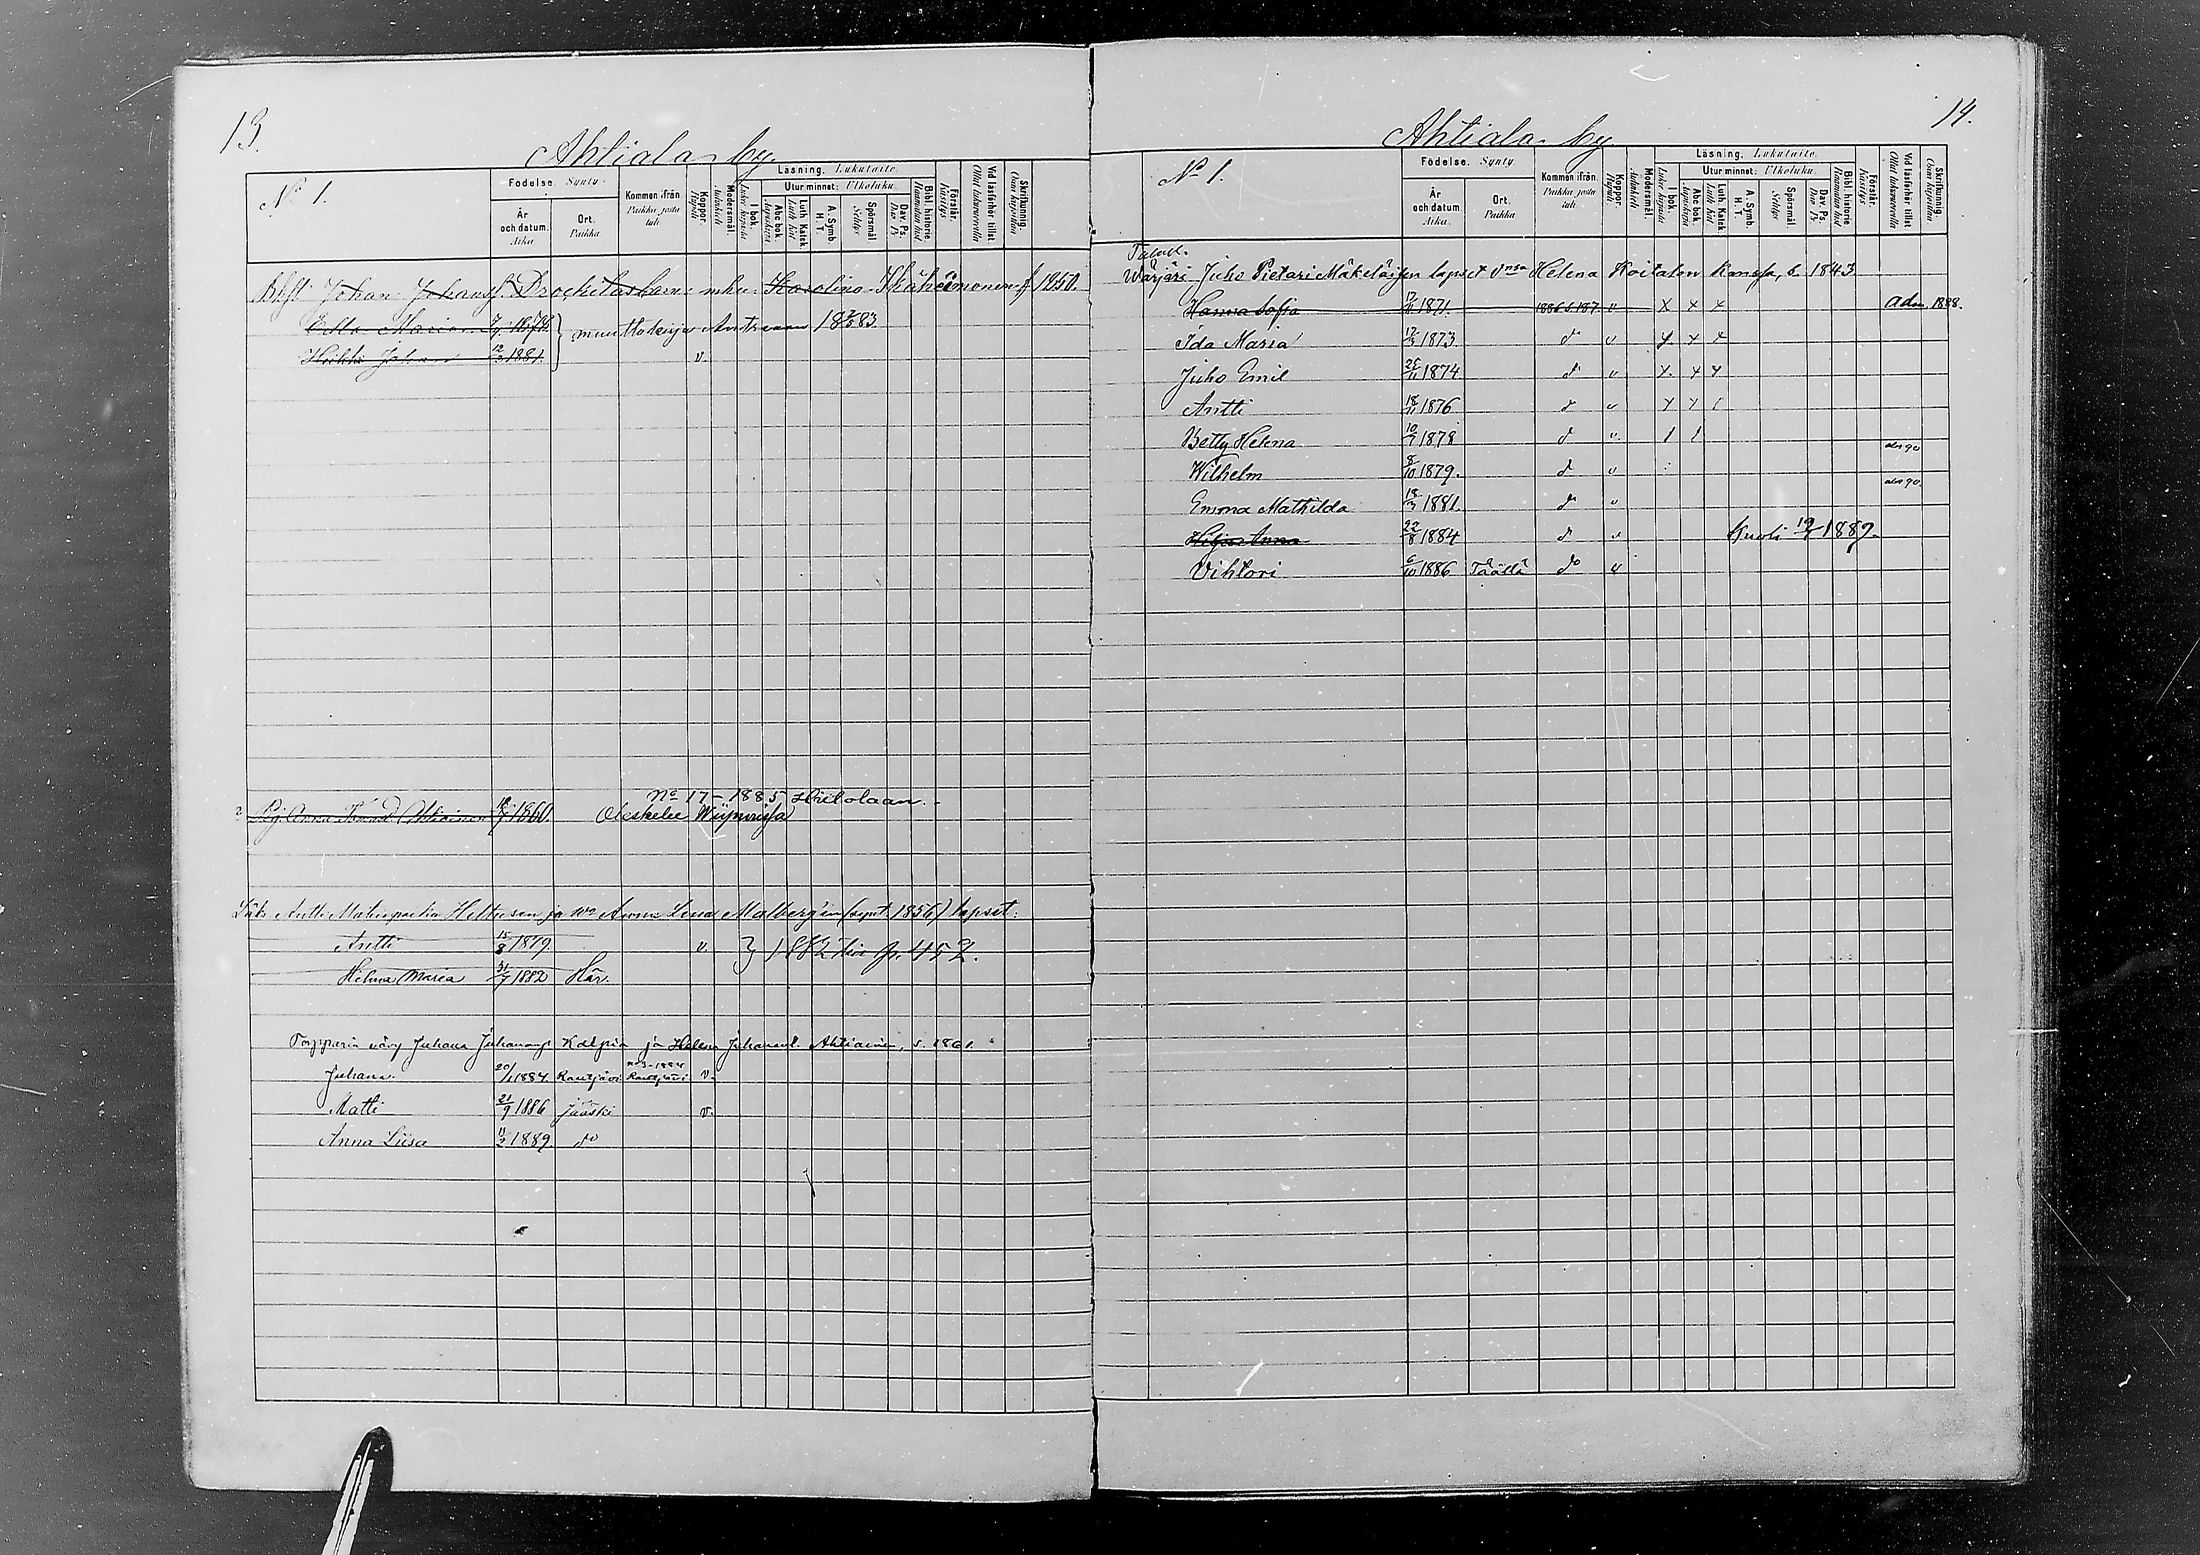 13.
Ahtiala by.
No 1.
Födelse. Synty.
År och datum. Aika
Ort. Paikka
Kommen ifrån. Paikka josta tuli.
Koppor. Rupuli
Modersmål. Äidinkieli
Läsning. Lukutaito.
I bok. Lukee kirjasta
Utur minnet: Ulkoluku.
Abc bok. Aapiskirja
Luth. Katek. Luth. Kat.
A. Symb. H. T.
Spörsmål Selitys
Dav. Ps. Dav. Ps.
Bibl. historie Raamatun hist
Förstår. Käsitys
Vid läsförhör tillst Ollut lukuwuorolla
Skriftkunnig. Osaa kirjoittaa
Johan Johans. mku. Karolina f 1850
Maria 1878
Heikki Johan 12/3 1881. v. muuttokirja Antreaan 18 2/5 83.
No 17 - 1885 Hiitolaan.
2 Pig. Anna Ahtiainen 1860. Oleskelee Wiipurissa
Antti Matinpoika Hiltusen ja wo Anna Lena Malberg'in (synt. 1856) lapset:
Antti 15/8 1879. v. } 1882 kirj p. 452.
Helena Maria 31/7 1882 Här.
Torpparin vävy Juhana Juhananp. Kalpio ja Helena Juhanant. Ahtiainen, s. 1861.
Juhana 20/1 1884. Rautjärvi No 3-1884 Rautjärvi v.
Matti 21/9 1886 Jääski v.
Anna Liisa 11/2 1889. do
14.
Ahtiala by
No 1.
Födelse. Synty
År och datum. Aika.
Ort. Paikka
Kommen ifrån. Paikka josta tuli.
Koppor. Rupuli
Modersmål. Äidinkieli
Läsning. Lukutaito.
I bok. Lukee kirjasta
Utur minnet: Ulkoluku.
Abc bok. Aapiskirja
Luth. Katek. Luth. Kat.
A. Symb. H. T.
Spörsmål. Selitys
Dav. Ps. Dav. Ps
Bibl. historie Raamatun hist
Förstår. Käsitys
Vid läsförhör tillst Ollut lukuwuorolla
Skriftkunnig. Osaa kirjoittaa
Wärjäri Juho Pietari Mäkeläisen lapset vnsa Helena Koitalon kanssa, s. 1843.
Hanna Sofia 1871. 1886 s. 187. v x x x Adm. 1888.
Ida Maria 17/3 1873. do v x x x
Juho Emil 26/11 1874 do v x x x
Antti 18/11 1876 do v x x /
Betty Helena 10/7 1878 do v / /
Wilhelm 8/10 1879. do v
Emma Mathilda 18/3 1881. do v
Hilja Anna 22/8 1884 do v Kuoli 19/7 1887.
Vihtori 6/10 1886 Täällä do v